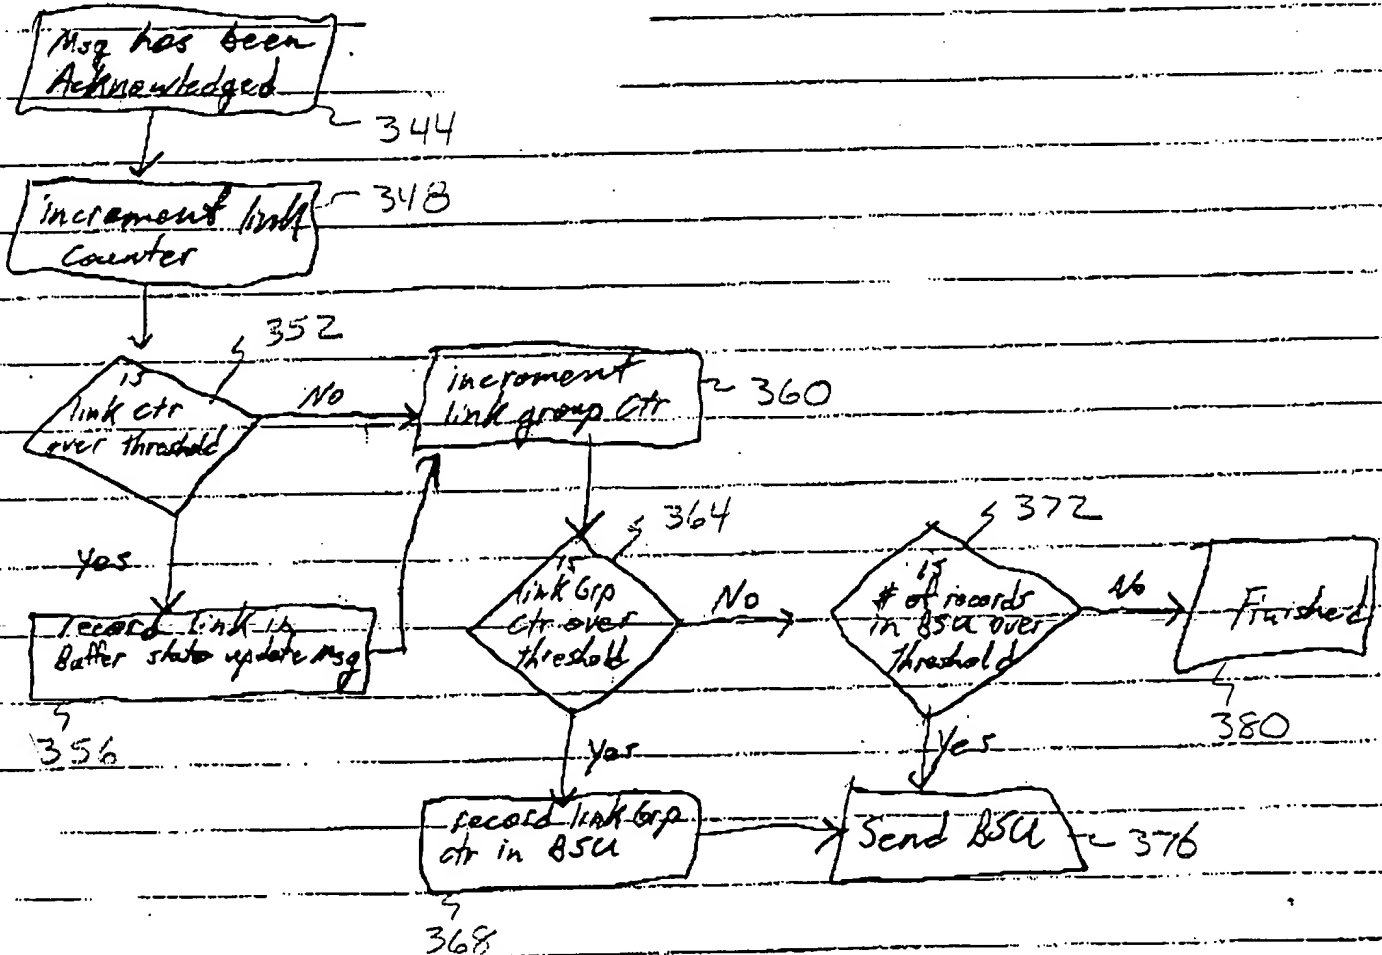 Msg has been
Acknowledged
344
increment link
counter
348
is
link ctr
over threshold
352
No
Yes
increment
link group Ctr
360
record link in
Buffer state update Msg
356
is
link Grp
ctr over
threshold
364
No
Yes
is
# of records
in BSU over
threshold
372
No
Yes
Finished
380
record link Grp
ctr in BSU
368
Send BSU
376